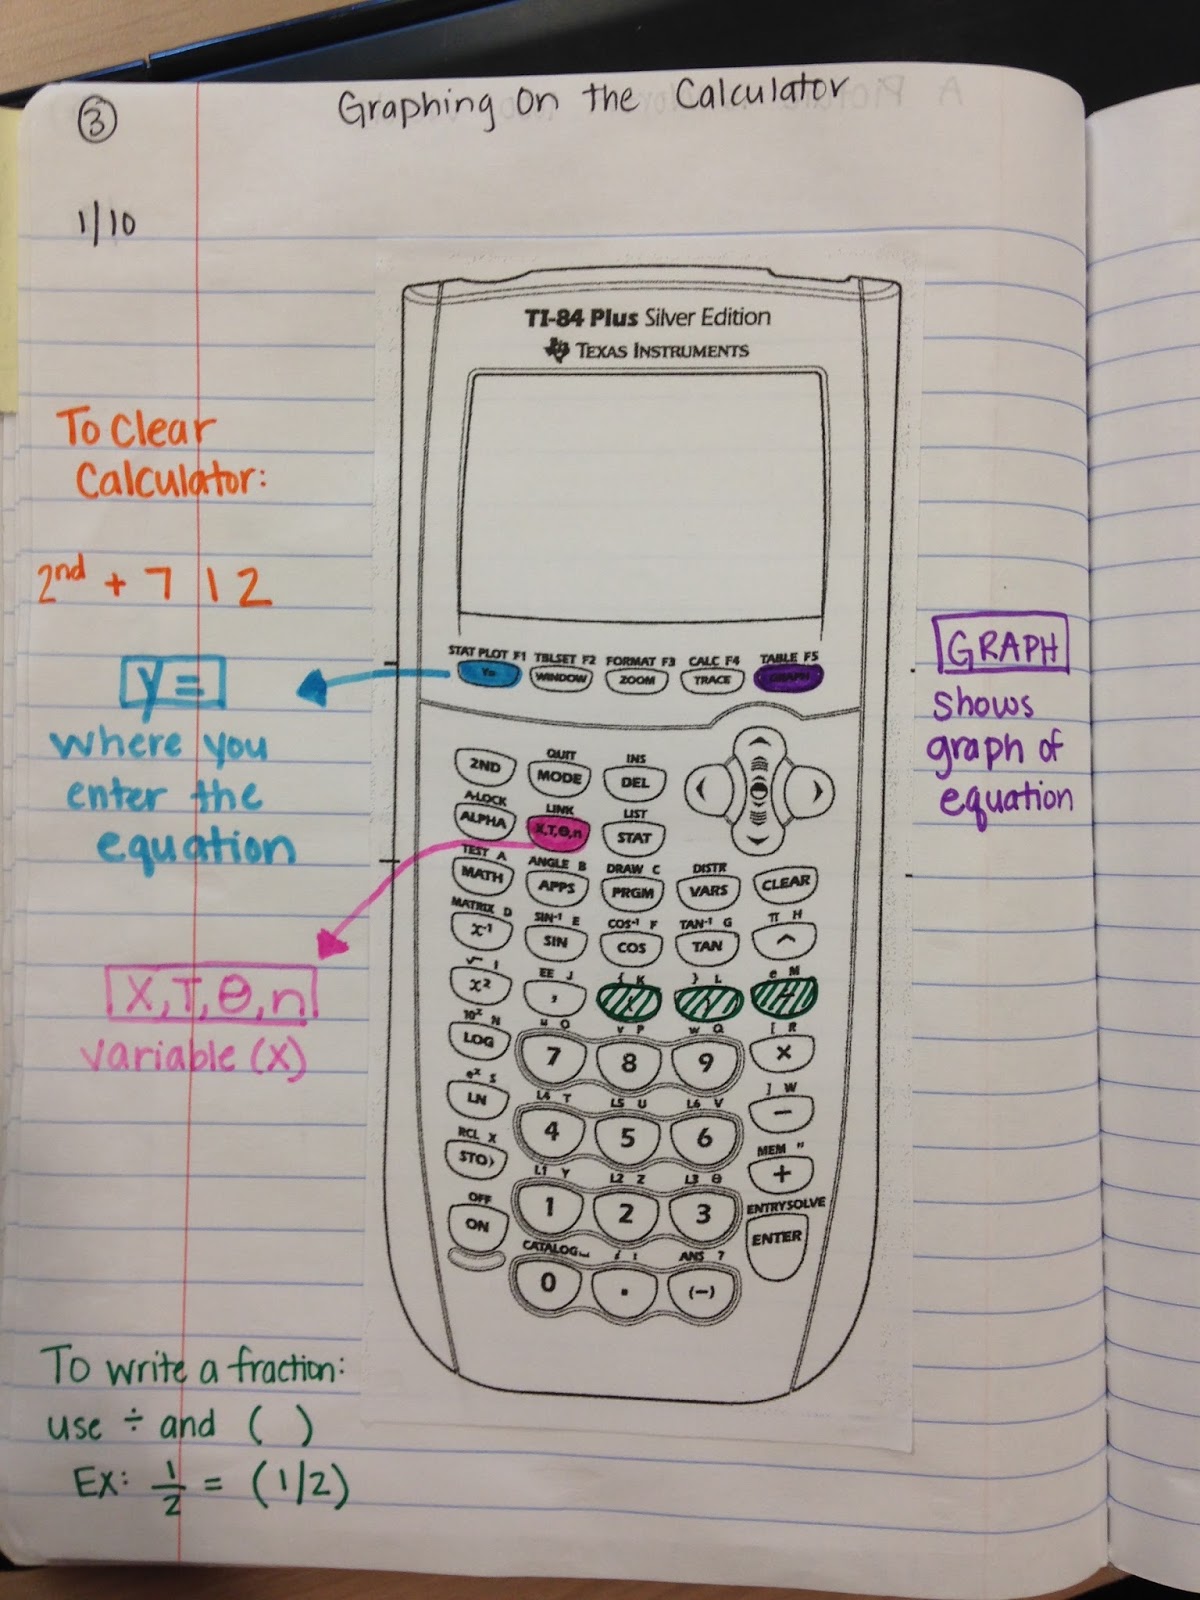 Graphing on the Calculator
3
1/10
TI-84 Plus Silver Edition
TEXAS INSTRUMENTS
To Clear
Calculator:
2nd + 7 1 2
y=
where you
enter the
equation
X,T,θ,n
variable (x)
GRAPH
shows
graph of
equation
STAT PLOT F1 TBLSET F2 FORMAT F3 CALC F4 TABLE F5
Y= WINDOW ZOOM TRACE GRAPH
QUIT INS
2ND MODE DEL
A-LOCK LINK LIST
ALPHA X,T,θ,n STAT
TEST A ANGLE B DRAW C DISTR
MATH APPS PRGM VARS CLEAR
MATRIX D SIN⁻¹ E COS⁻¹ F TAN⁻¹ G π H
x⁻¹ SIN COS TAN ^
√ I EE J { K } L e M
x² ,
10ˣ N u O v P w Q [ R
LOG 7 8 9 ×
eˣ S L4 T L5 U L6 V ] W
LN 4 5 6 −
RCL X L1 Y L2 Z L3 θ MEM "
STO› 1 2 3 +
OFF CATALOG i : ANS ? ENTRY SOLVE
ON 0 . (−) ENTER
To write a fraction:
use ÷ and ( )
Ex: 1/2 = (1/2)